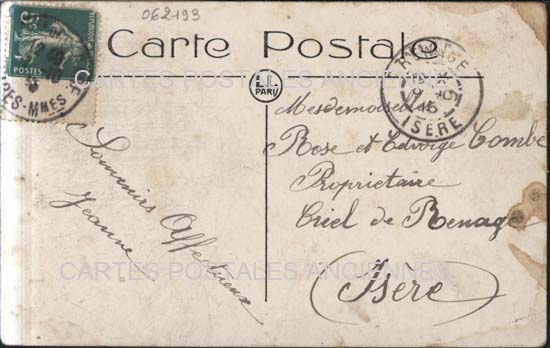 062193
Carte Postale
POSTES
LL
PARIS
ISERE
CARTES POSTALES ANCIENNES
Mesdemoiselles
Rose et Edvige Combe
Propriétaire
Criel de Renage
(Isère)
Souvenirs Affectueux
Jeanne
CARTES POSTALES ANCIENNES